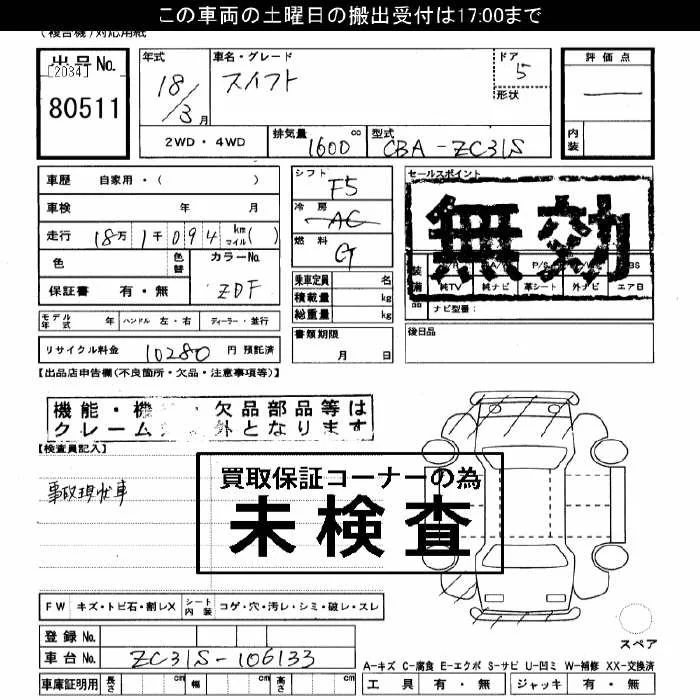 この車両の土曜日の搬出受付は17:00まで
(複合機)対応用紙
出品No. [2034] 80511
年式 18/3月
車名・グレード スイフト
ドア 5
形状
評価点
内装
2WD・4WD
排気量 1600 cc
型式 CBA-ZC31S
車歴 自家用・( )
車検 年 月
走行 18万1千094 km マイル( )
色 色替 カラーNo. ZDF
保証書 有・無
モデル年式 年 ハンドル 左・右 ディーラー・並行
リサイクル料金 10280 円 預託済
シフト F5
冷房 AC
燃料 G
乗車定員 名
積載量 kg
総重量 kg
書類期限 月 日
セールスポイント
無効
装備品
P/S
純TV 純ナビ 革シート 外ナビ エアB
ナビ型番:
後日品
【出品店申告欄(不良箇所・欠品・注意事項等)】
機能・機 ・欠品部品等は
クレーム 外となります
【検査員記入】
事故現状車
買取保証コーナーの為
未検査
FW キズ・トビ石・割レX シート内装 コゲ・穴・汚レ・シミ・破レ・スレ
登録No.
車台No. ZC31S-106133
車庫証明用 長さ cm 幅 cm 高さ cm
スペア
A-キズ C-腐食 E-エクボ S-サビ U-凹ミ W-補修 XX-交換済
工具 有・無 ジャッキ 有・無